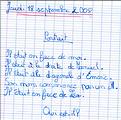 Jeudi 18 septembre 2008
Portrait
Il était en face de moi.
Il était à la droite de Samuel.
Il était à la diagonale d'Emeric.
Son nom commence par un M.
Il était en face de Léa.
Qui est-il ?